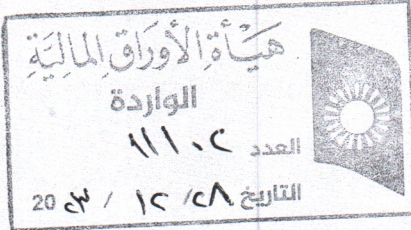 هيأة الأوراق المالية
الواردة
العدد ١١١٠٢
التاريخ ٢٨ / ١٢ / 20٢٣